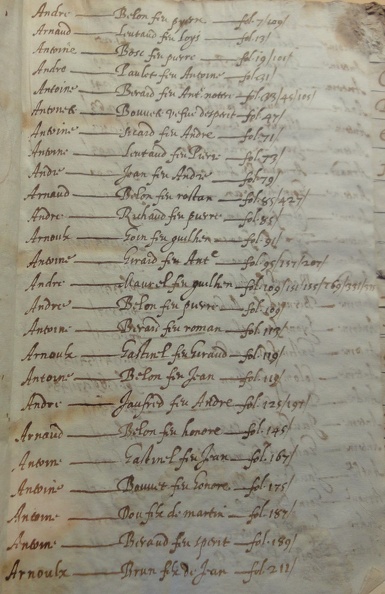 Andre — Belon feu pierre — fol. 7/109/
Arnaud — Leutaud feu Loys — fol. 13/
Antoine — Bosc feu pierre — fol. 19/101/
Andre — Paulet feu Antoine — fol. 31/
Antoine — Beraud feu Ant. fol. 33/45/101/
Bouvet vefue desperit — fol. 47/
Antoine — Sicard feu Andre — fol. 71/
Antoine — Leutaud feu Pierre — fol. 73/
Andre — Jean feu Andre — fol. 79/
Arnaud — Belon feu rostan — fol. 85/427/
Andre — Richaud feu pierre — fol. 85/
Arnoulx — Goin feu guilhen — fol. 91/
Antoine — Giraud feu Ante — fol. 95/157/207/
Andre — Maurel feu guilhen — fol. 109/151/155/
Andre — Belon feu pierre — fol. 109/
Antoine — Beraud feu roman — fol. 113/
Arnoulx — Gastinel feu Giraud — fol. 119/
Antoine — Belon feu Jean — fol. 119/
Andre — Jaufred feu Andre — fol. 125/197/
Arnaud — Belon feu honore — fol. 145/
Antoine — Gastinel feu Jean — fol. 167/
Antoine — Bouvet feu honore — fol. 175/
Antoine — filz de martin — fol. 187/
Antoine — Beraud feu sperit — fol. 189/
Arnoulx — Brun filz de Jean — fol. 211/